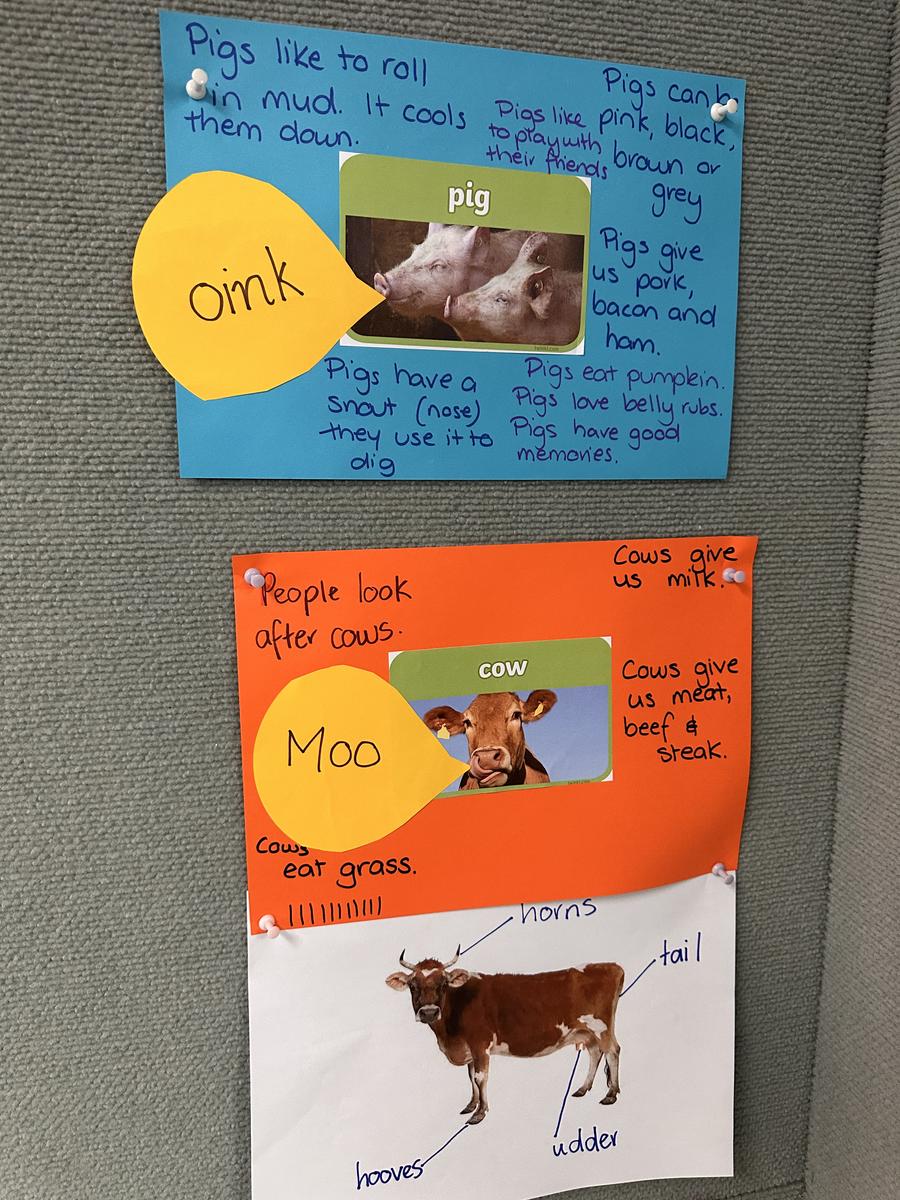 Pigs like to roll
in mud. It cools
them down.
Pigs like
to play with
their friends
Pigs can be
pink, black,
brown or
grey
pig
oink
Pigs give
us pork,
bacon and
ham.
Pigs have a
snout (nose)
they use it to
dig
Pigs eat pumpkin.
Pigs love belly rubs.
Pigs have good
memories.
People look
after cows.
Cows give
us milk.
cow
Moo
Cows give
us meat,
beef &
steak.
Cows
eat grass.
horns
tail
hooves
udder